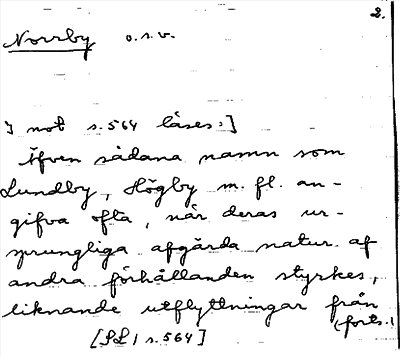 2.
Norrby o.s.v.
I not s. 564 läses:]
Äfven sådana namn som
Lundby, Högby m. fl. an-
gifva ofta, när deras ur-
sprungliga afgärda natur af
andra förhållanden styrkes,
liknande utflyttningar från
(forts.)
[SL 1 s. 564]